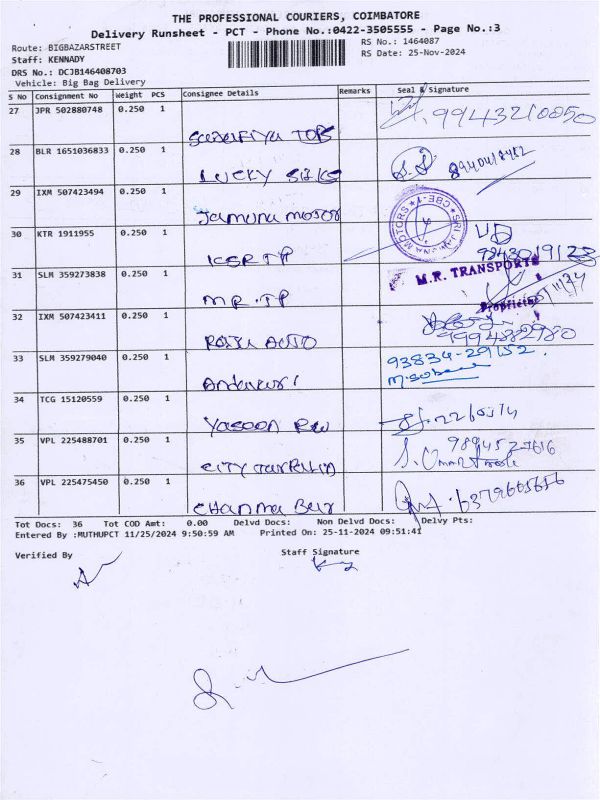 THE PROFESSIONAL COURIERS, COIMBATORE
Delivery Runsheet - PCT - Phone No.:0422-3505555 - Page No.:3
Route: BIGBAZARSTREET
RS No.: 1464087
Staff: KENNADY
RS Date: 25-Nov-2024
DRS No.: DCJB146408703
Vehicle: Big Bag Delivery
S No Consignment No Weight PCS Consignee Details Remarks Seal & Signature
27 JPR 502880748 0.250 1 9943210050
28 BLR 1651036833 0.250 1
LUCKY SILKS
29 IXM 507423494 0.250 1
Jamuna motor
30 KTR 1911955 0.250 1
KSR TP
31 SLM 359273838 0.250 1 M.R. TRANSPORTS
MR. TP
32 IXM 507423411 0.250 1
RAJU AUTO 9994882980
33 SLM 359279040 0.250 1 93834-29152
34 TCG 15120559 0.250 1
35 VPL 225488701 0.250 1
CITY
36 VPL 225475450 0.250 1 6379605656
Tot Docs: 36 Tot COD Amt: 0.00 Delvd Docs: Non Delvd Docs: Delvy Pts:
Entered By :MUTHUPCT 11/25/2024 9:50:59 AM Printed On: 25-11-2024 09:51:41
Verified By Staff Signature